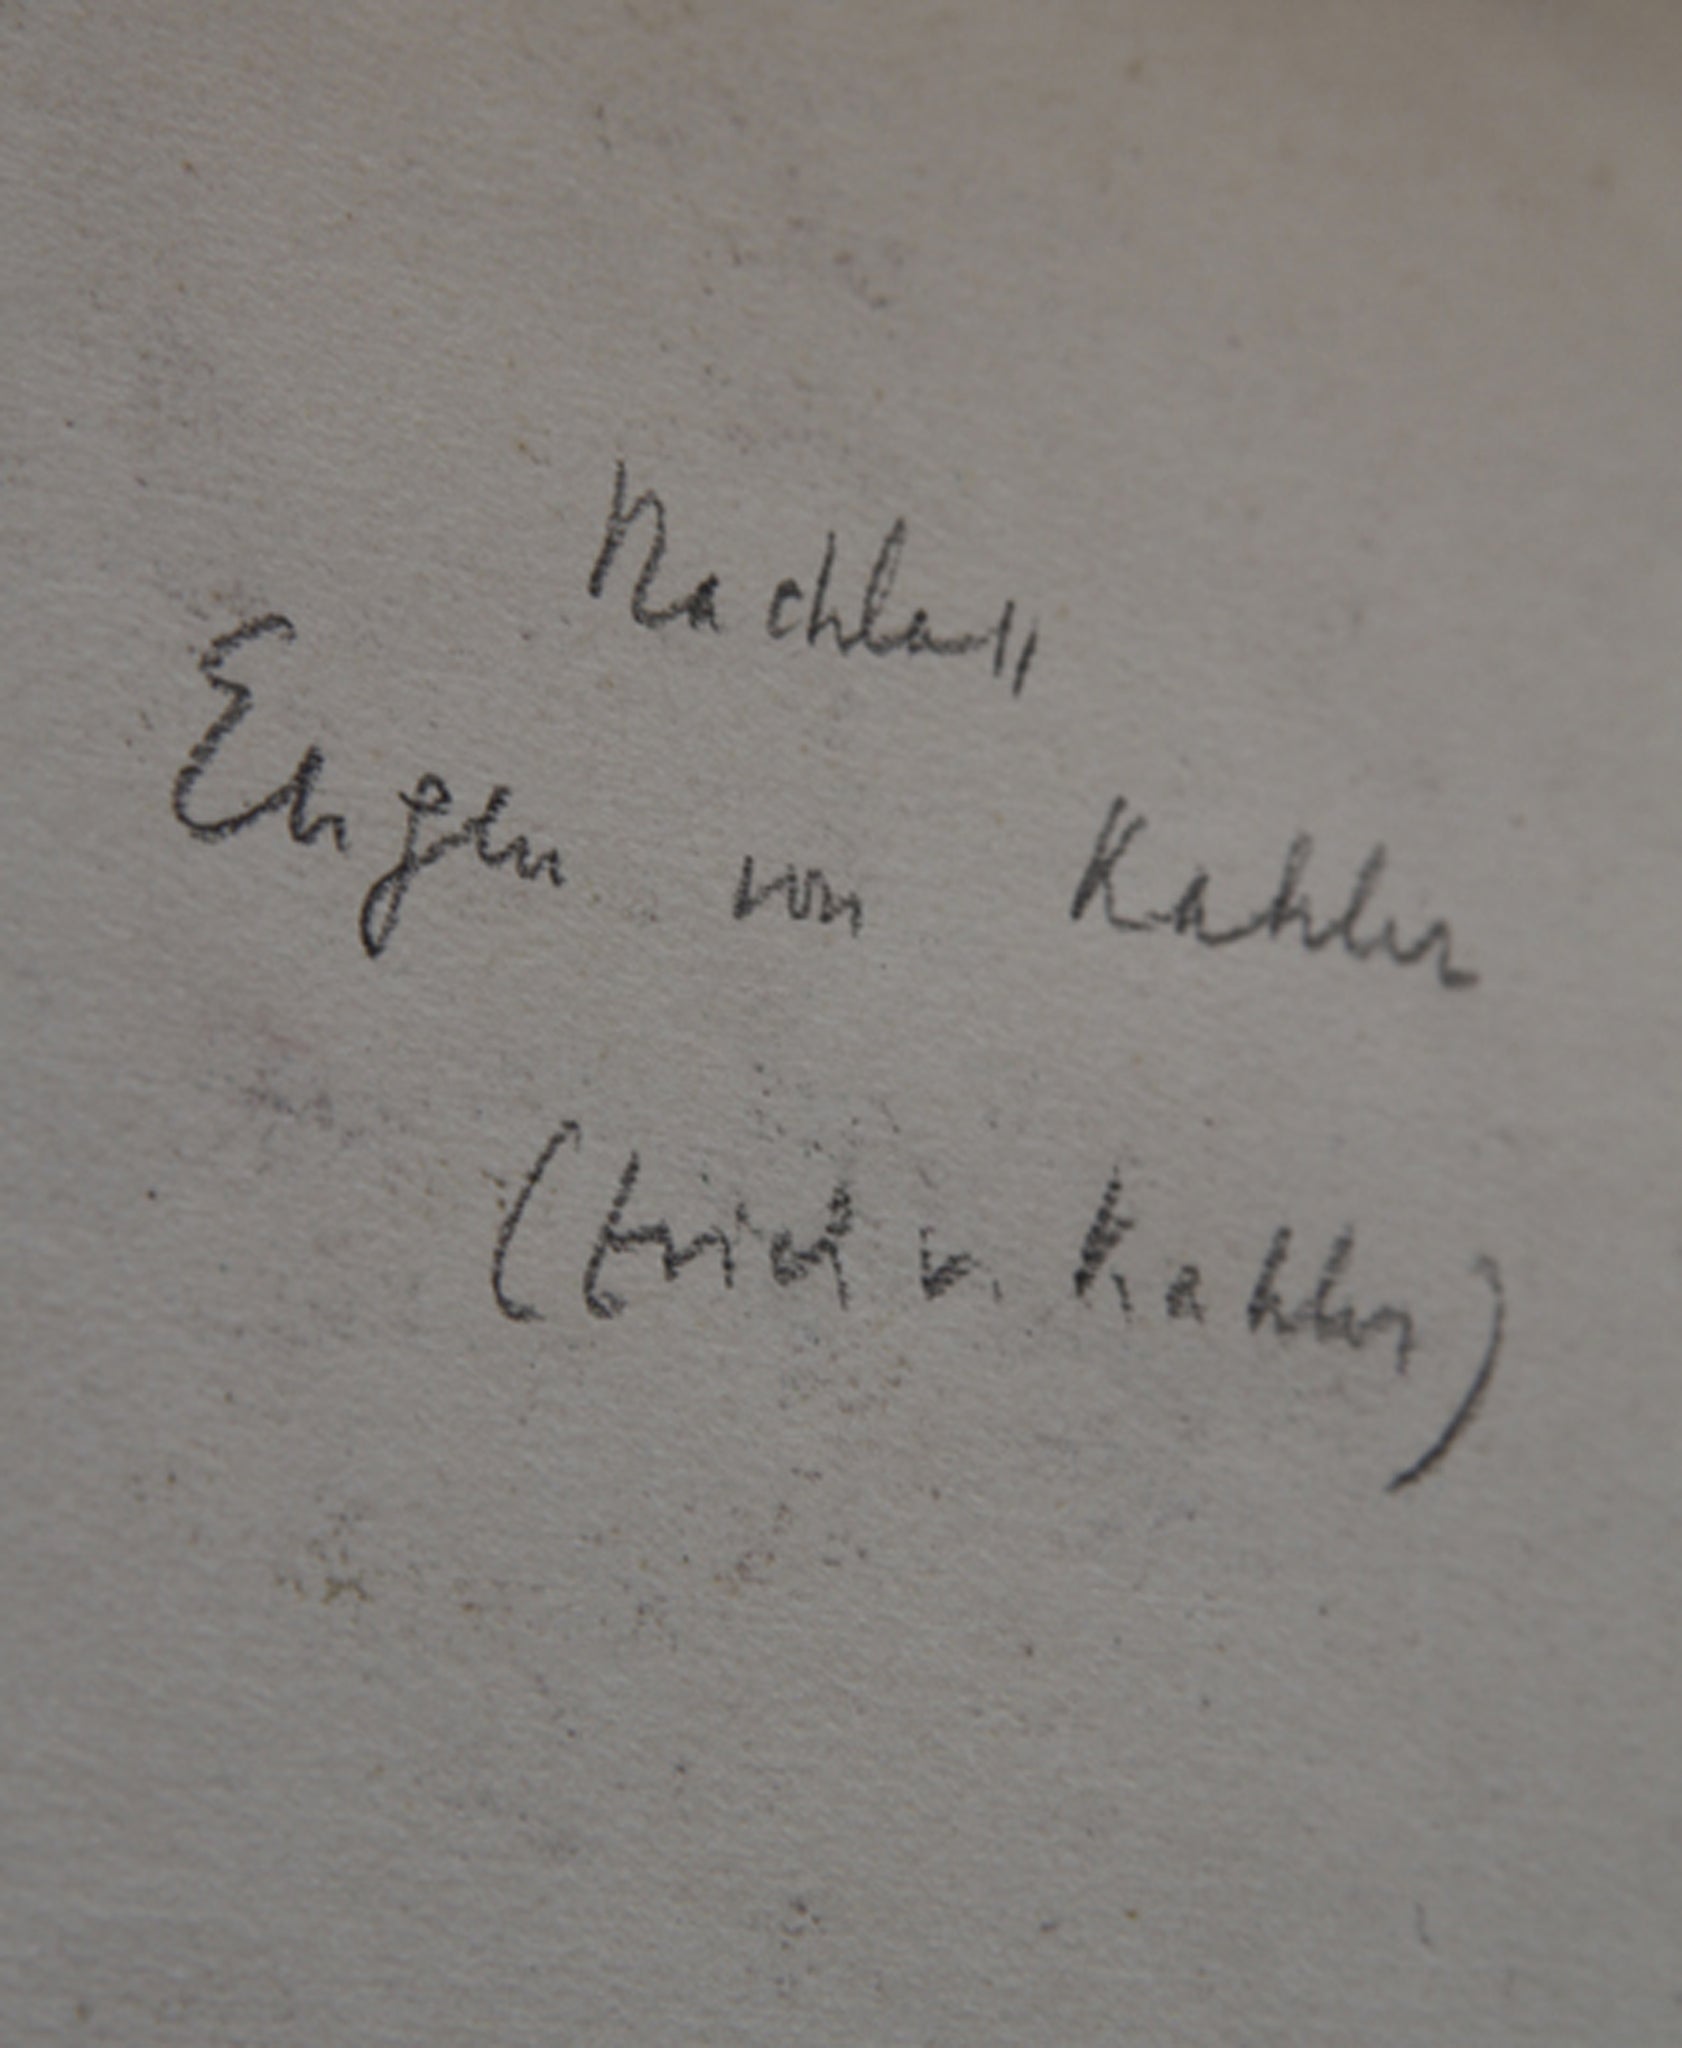 Nachlass
Eugen von Kahler
(Erich v. Kahler)